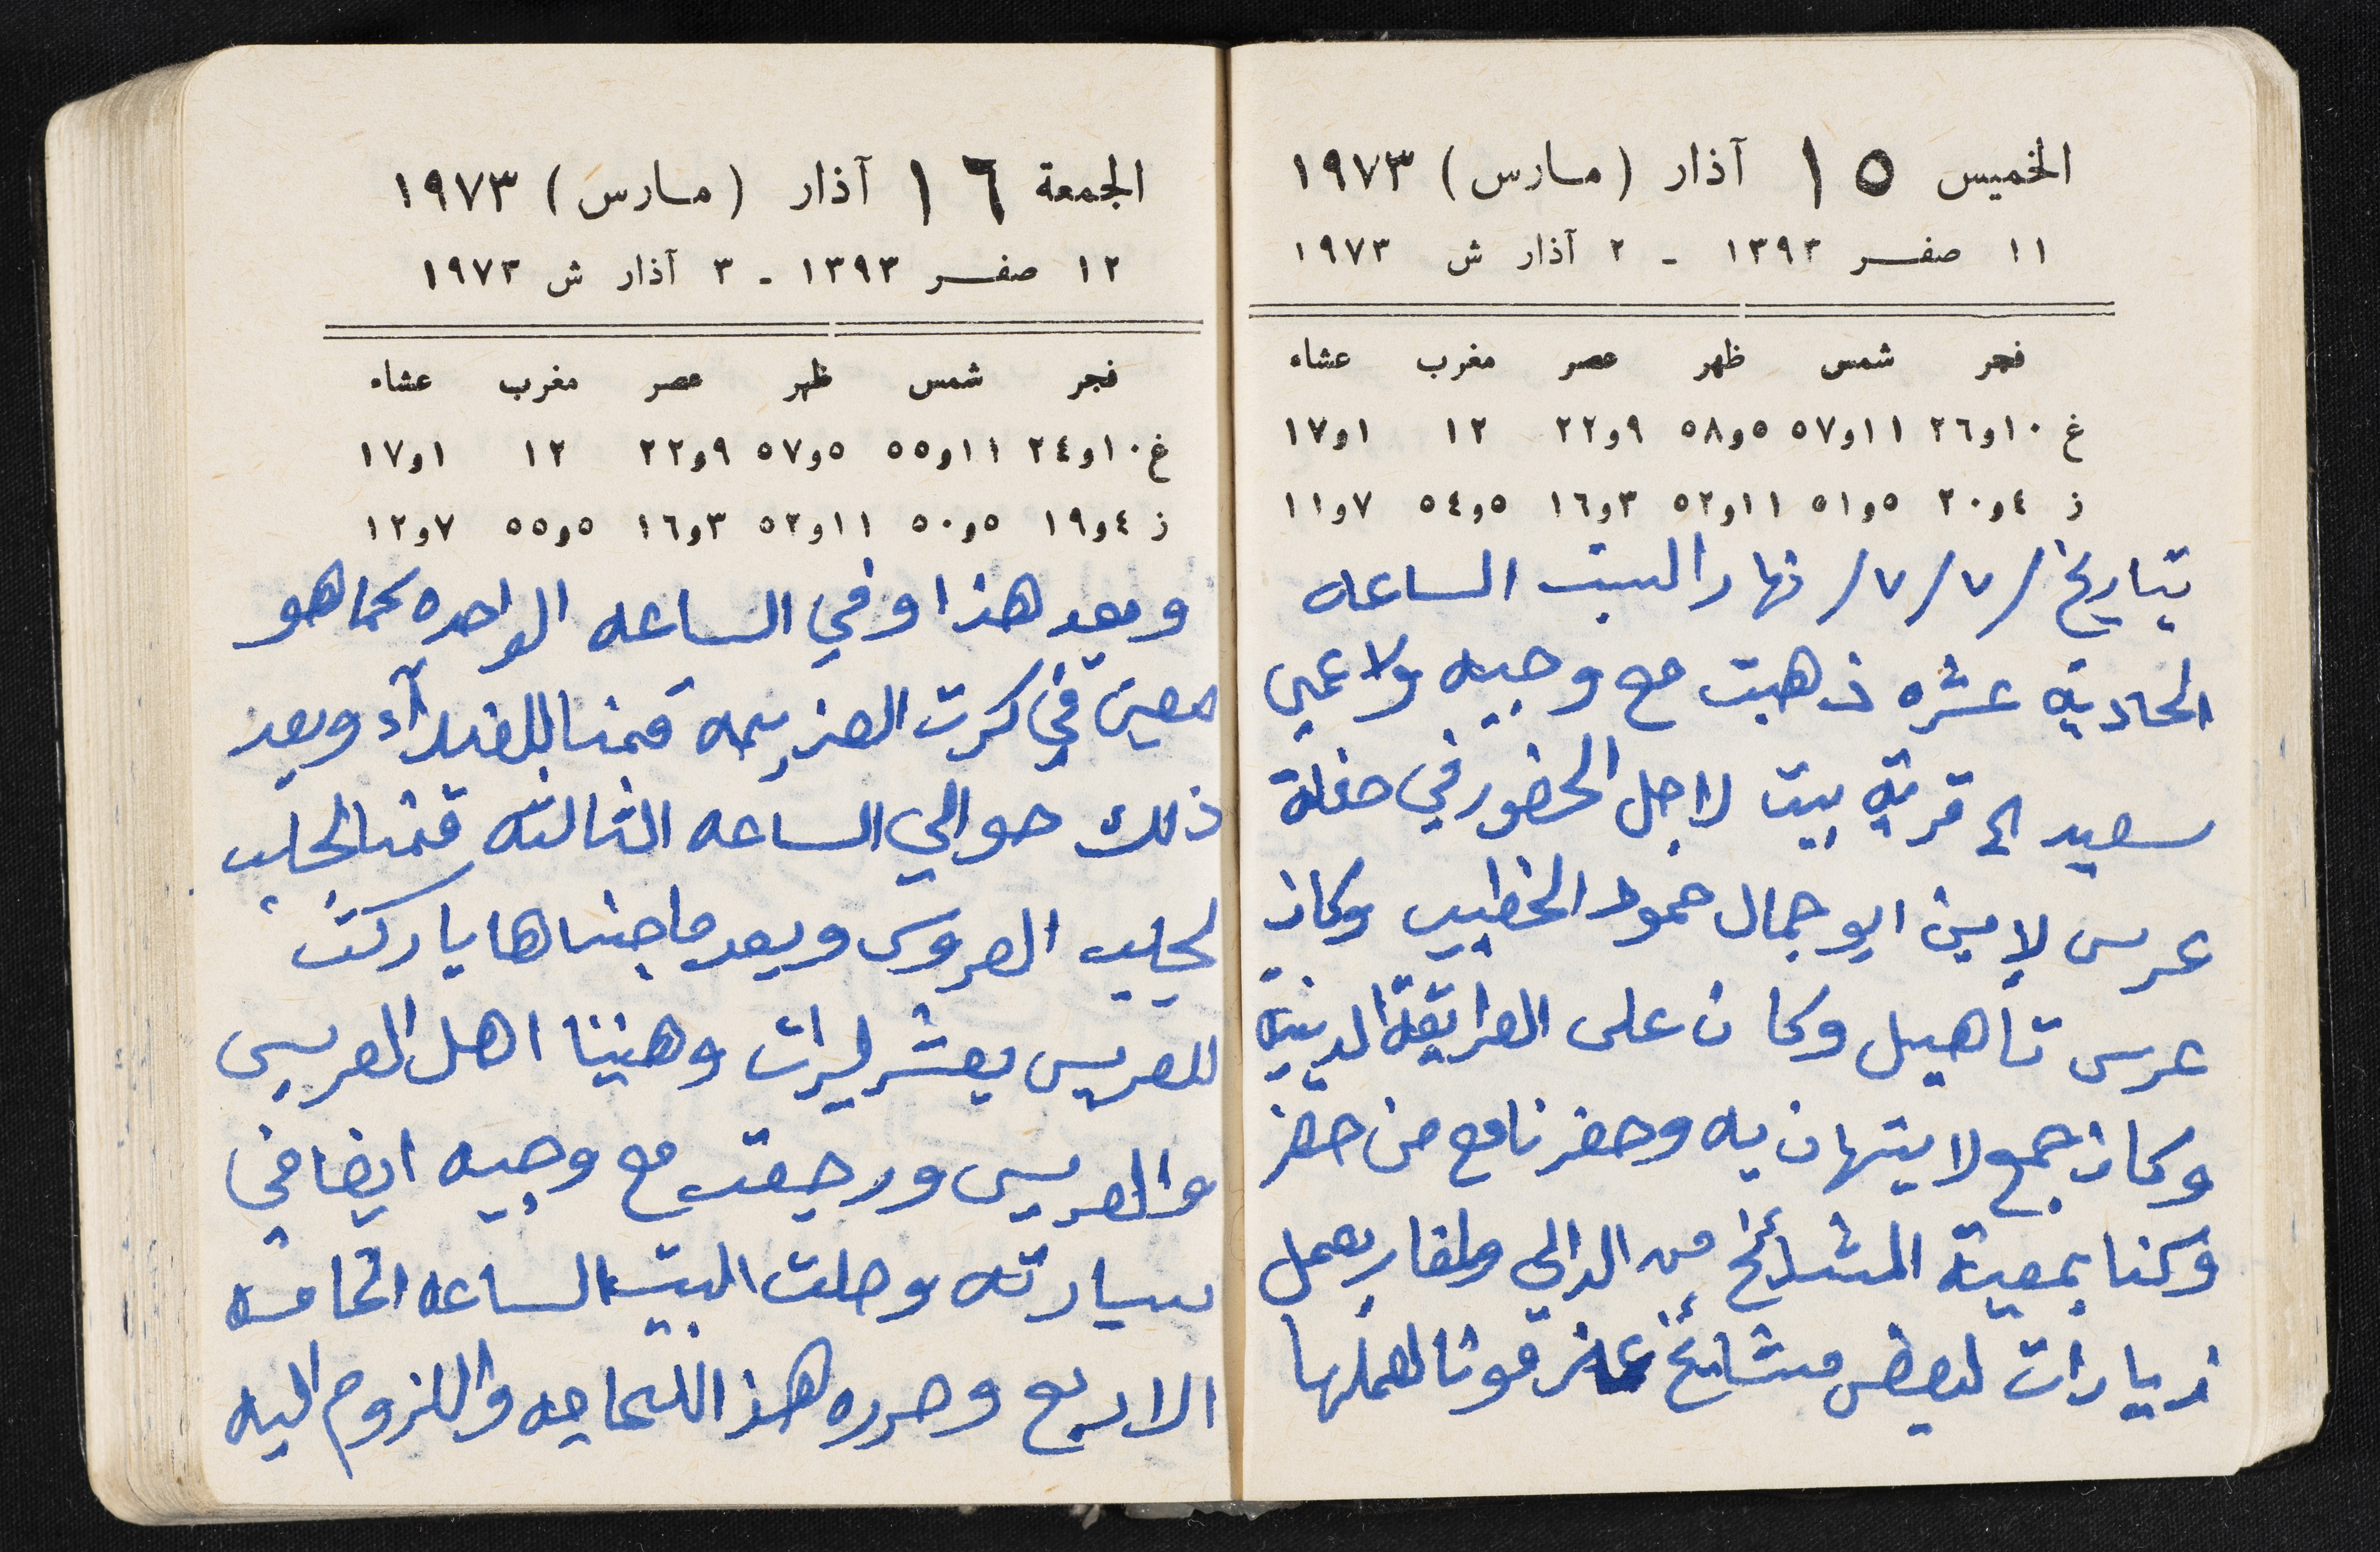 الخميس ١٥ آذار (مارس) ١٩٧٣
١١ صفر ١٣٩٣ - ٢ آذار ش ١٩٧٣
فجر شمس ظهر عصر مغرب عشاء
غ ١٠و٢٦ ١١و٥٧ ٥و٥٨ ٩و٢٢ ١٢ ١و١٧
ز ٤و٢٠ ٥و٥١ ١١و٥٢ ٣و١٦ ٥و٥٤ ٧و١١
بتاريخ /٧/٧/ نهار السبت الساعه
الحادية عشره ذهبت مع وجيه ولاعمي
سعيد الى قرية بيت لاجل الحضور في حفلة
عرس لامين ابو جمال حمود الخطيب وكان
عرس تأهيل وكان على الطرايقة الدينية
وكان جمع لا يتهان به وحضرنا مع من حضر
وكنا بمعية المشائخ من الدالي
زيارات لبعض مشائخ
الجمعة ١٦ آذار (مارس) ١٩٧٣
١٢ صفر ١٣٩٣ - ٣ آذار ش ١٩٧٣
فجر شمس ظهر عصر مغرب عشاء
غ ١٠و٢٤ ١١و٥٥ ٥و٥٧ ٩و٢٢ ١٢ ١و١٧
ز ٤و١٩ ٥و٥٠ ١١و٥٢ ٣و١٦ ٥و٥٥ ٧و١٢
وبعد هذا وفي الساعه الواحده كما هو
معين في كرت العزيمه قمنا للغدآء وبعد
ذلك حوالي الساعه الثالثه قمنا لجلب
لجيلب العروس وبعد ما جبناها باركت
للعريس بعشر ليرات وهنينا اهل العريس
والعريس ورجعت مع وجيه ايضا في
سيارته وصلت البيت الساعه الخامسه
الا ربع وحرره هذا للحاجه واللزوم اليه